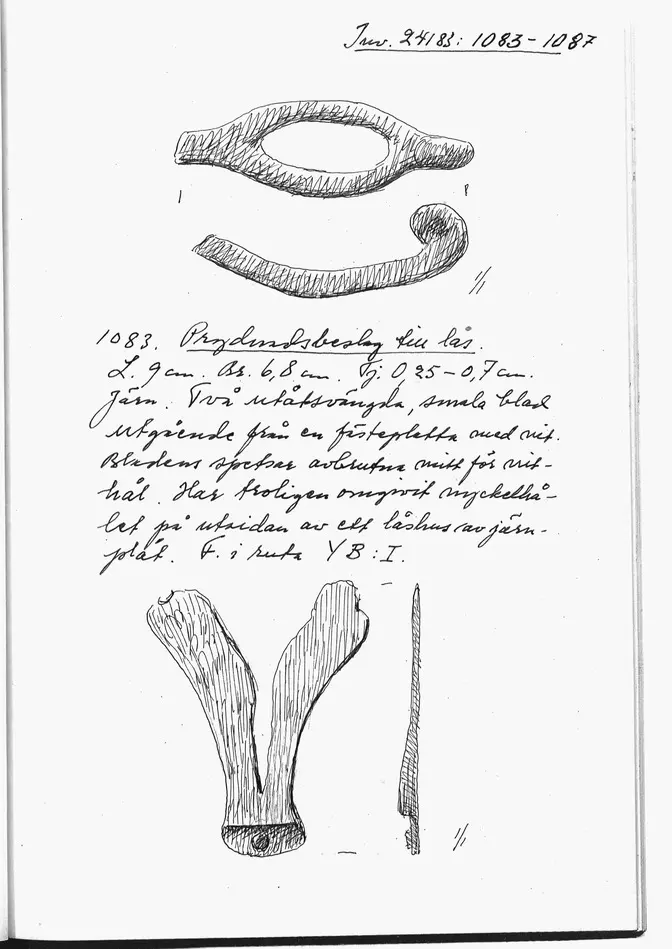 Inv. 24183: 1083-1087
1/1
1083. Prydnadsbeslag till lås.
L. 9 cm. Br. 6,8 cm. Tj. 0,25-0,7 cm.
Järn. Två utåtsvängda, smala blad
utgående från en fästeplatta med nit.
Bladens spetsar avbrutna mitt för nit-
hål. Har troligen omgivit nyckelhå-
let på utsidan av ett låshus av järn-
plåt. F. i ruta YB:I.
1/1